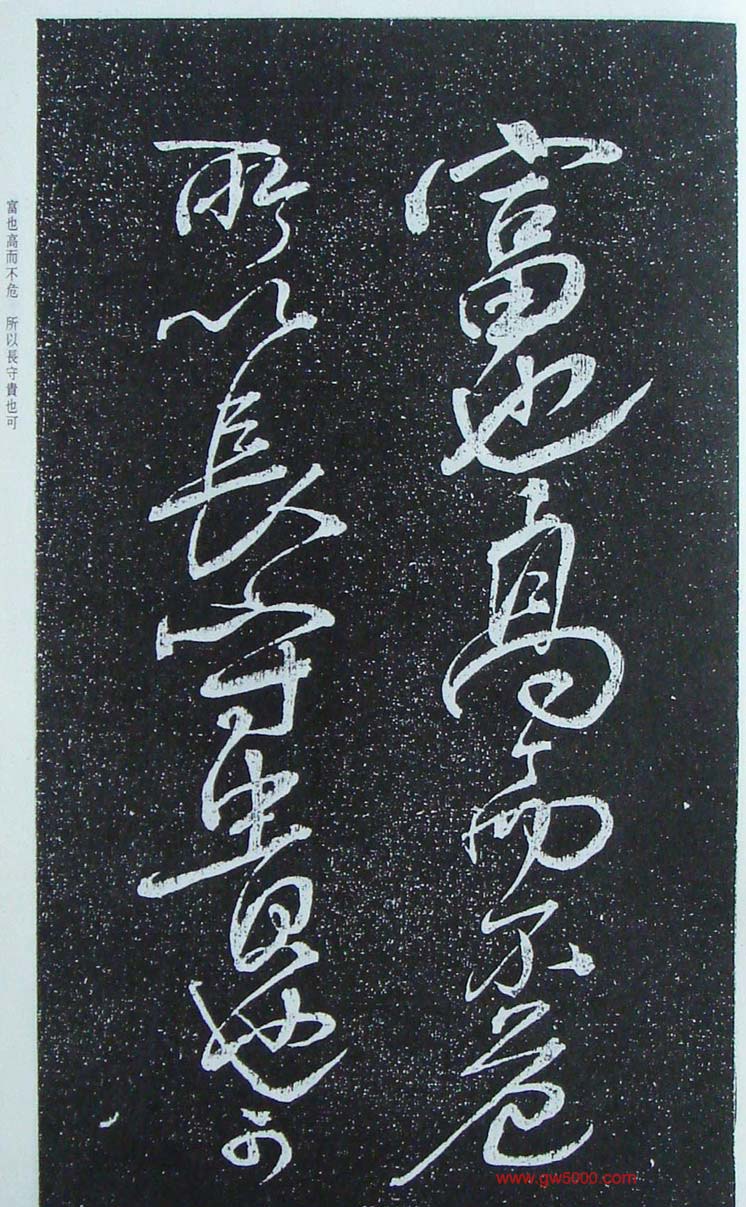 富也高而不危
所以長守貴也可
富也高而不危 所以長守貴也可
www.gw5000.com